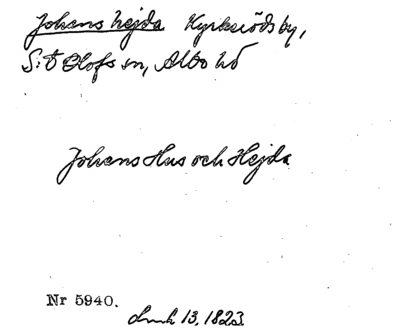 Johens hejda Kyrkeröds by,
S:t Olofs sn, Albo hd
Johens Hus och Hejda
Nr 5940.
13, 1823